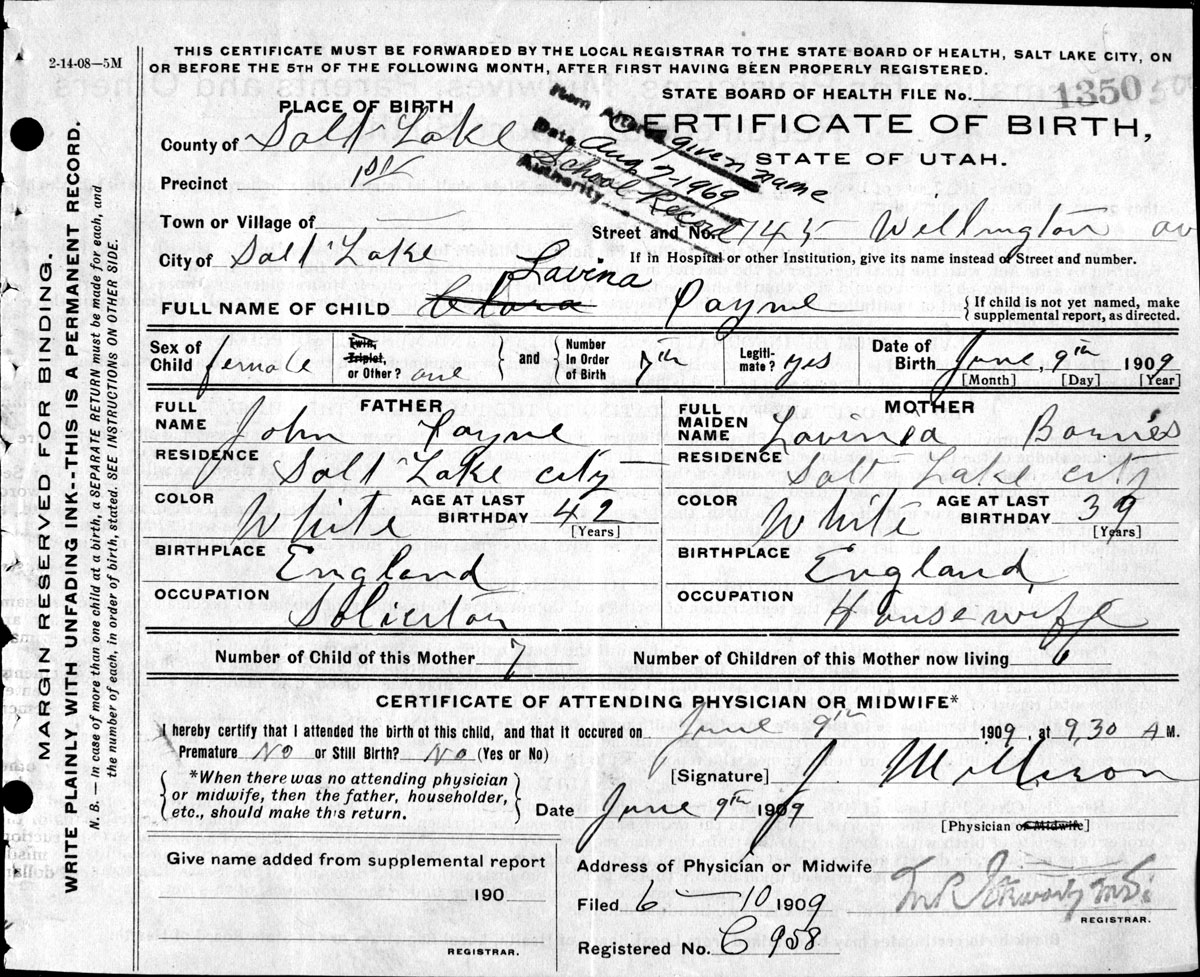 2-14-08—5M
THIS CERTIFICATE MUST BE FORWARDED BY THE LOCAL REGISTRAR TO THE STATE BOARD OF HEALTH, SALT LAKE CITY, ON
OR BEFORE THE 5TH OF THE FOLLOWING MONTH, AFTER FIRST HAVING BEEN PROPERLY REGISTERED.
STATE BOARD OF HEALTH FILE No. 1350
PLACE OF BIRTH
CERTIFICATE OF BIRTH,
STATE OF UTAH.
Item Altered given name
Date Aug 7-1969
Authority School Record
County of Salt Lake
Precinct 1st
Town or Village of —
Street and No. 745 Wellington av
City of Salt Lake
If in Hospital or other Institution, give its name instead of Street and number.
Lavina
FULL NAME OF CHILD Clara Payne
{ If child is not yet named, make
supplemental report, as directed.
Sex of Child female
Twin, Triplet, or Other? one
} and {
Number in Order of Birth 7th
Legiti-mate? yes
Date of Birth June, 9th 1909
[Month] [Day] [Year]
FATHER
FULL NAME John Payne
RESIDENCE Salt Lake city
COLOR White AGE AT LAST BIRTHDAY 42
[Years]
BIRTHPLACE England
OCCUPATION Solicitor
MOTHER
FULL MAIDEN NAME Lavinia
RESIDENCE Salt Lake city
COLOR White AGE AT LAST BIRTHDAY 39
[Years]
BIRTHPLACE England
OCCUPATION Housewife
Number of Child of this Mother 7 Number of Children of this Mother now living 6
CERTIFICATE OF ATTENDING PHYSICIAN OR MIDWIFE*
I hereby certify that I attended the birth of this child, and that it occured on June 9th 1909, at 9,30 A M.
Premature No or Still Birth? No (Yes or No)
{ *When there was no attending physician
or midwife, then the father, householder,
etc., should make this return. }
[Signature] J
Date June 9th 1909
[Physician or Midwife]
Give name added from supplemental report
190
REGISTRAR.
Address of Physician or Midwife
Filed 6 — 10 1909
REGISTRAR.
Registered No. C 958
MARGIN RESERVED FOR BINDING.
WRITE PLAINLY WITH UNFADING INK--THIS IS A PERMANENT RECORD.
N. B. — In case of more than one child at a birth, a SEPARATE RETURN must be made for each, and
the number of each, in order of birth, stated. SEE INSTRUCTIONS ON OTHER SIDE.